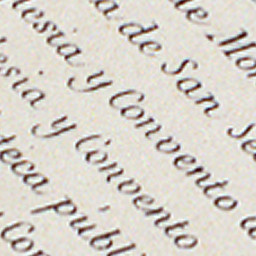 de Mon
a de San Se
lesia y Convento d
lesia y Convento
teca públ
y Con